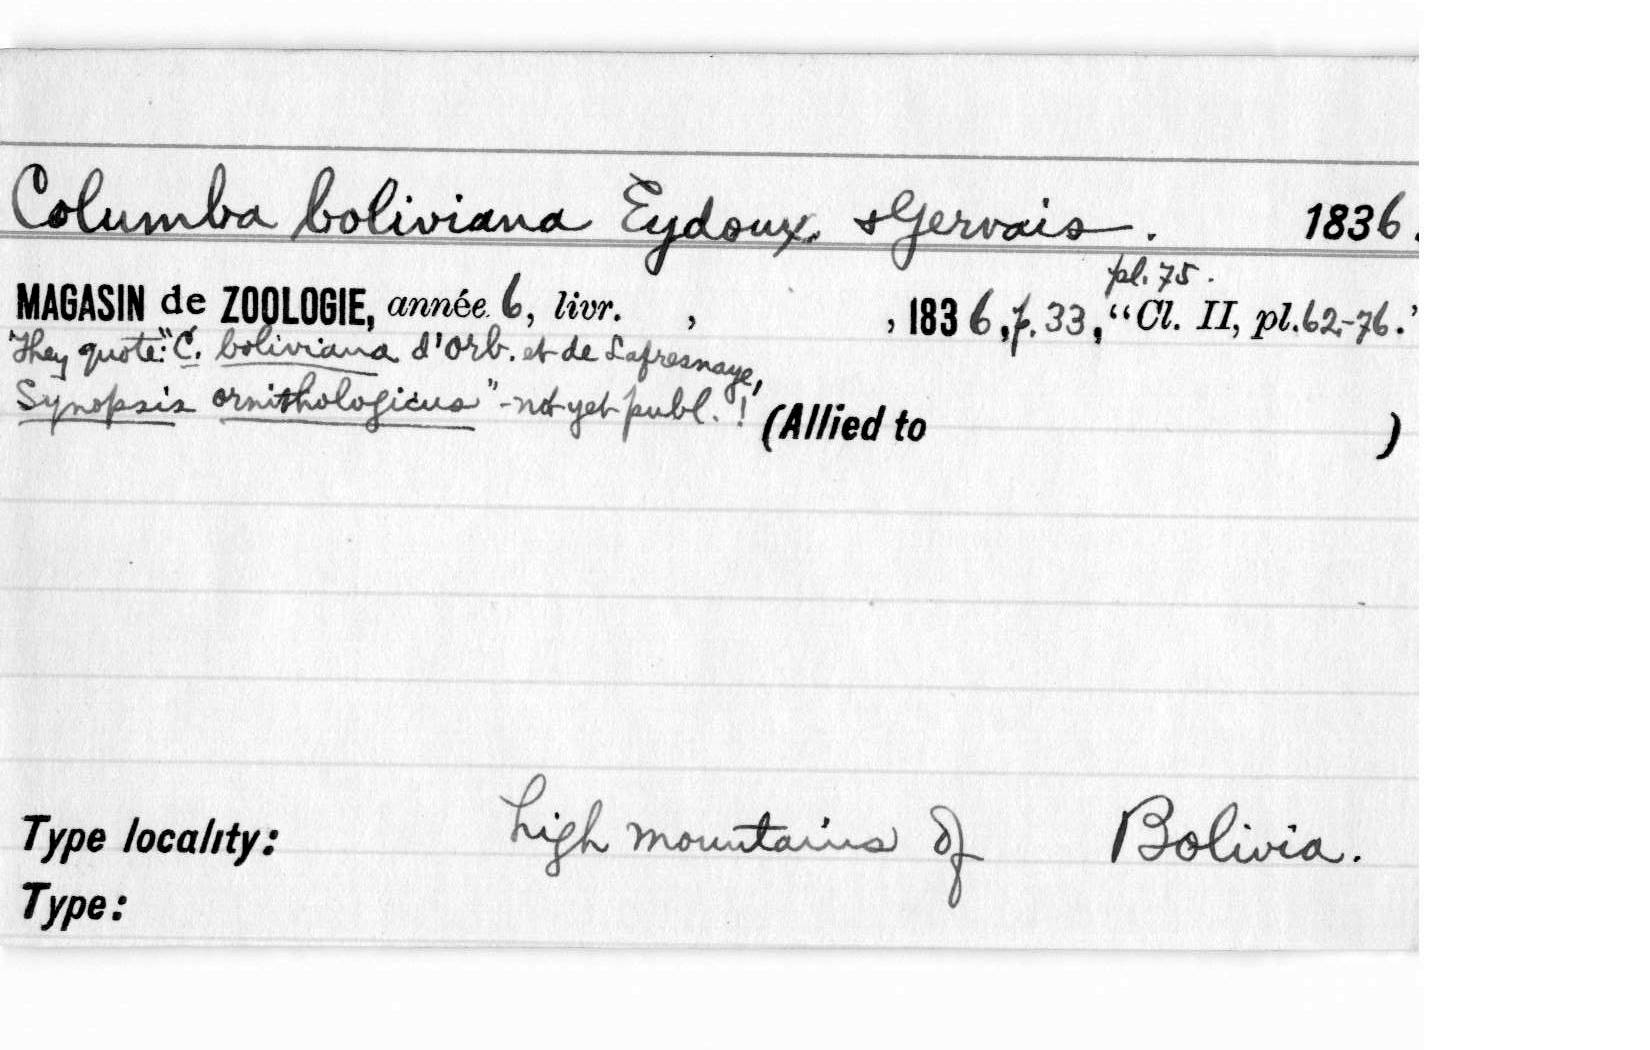 Columba boliviana Eydoux & Gervais. 1836.
pl. 75.
MAGASIN de ZOOLOGIE, année 6, livr. , , 1836, p. 33, “Cl. II, pl. 62-76.”
They quote: "C. boliviana d'Orb. et de Lafresnaye,
Synopsis ornithologicus" - not yet publ.!
(Allied to )
Type locality: high mountains of Bolivia.
Type: